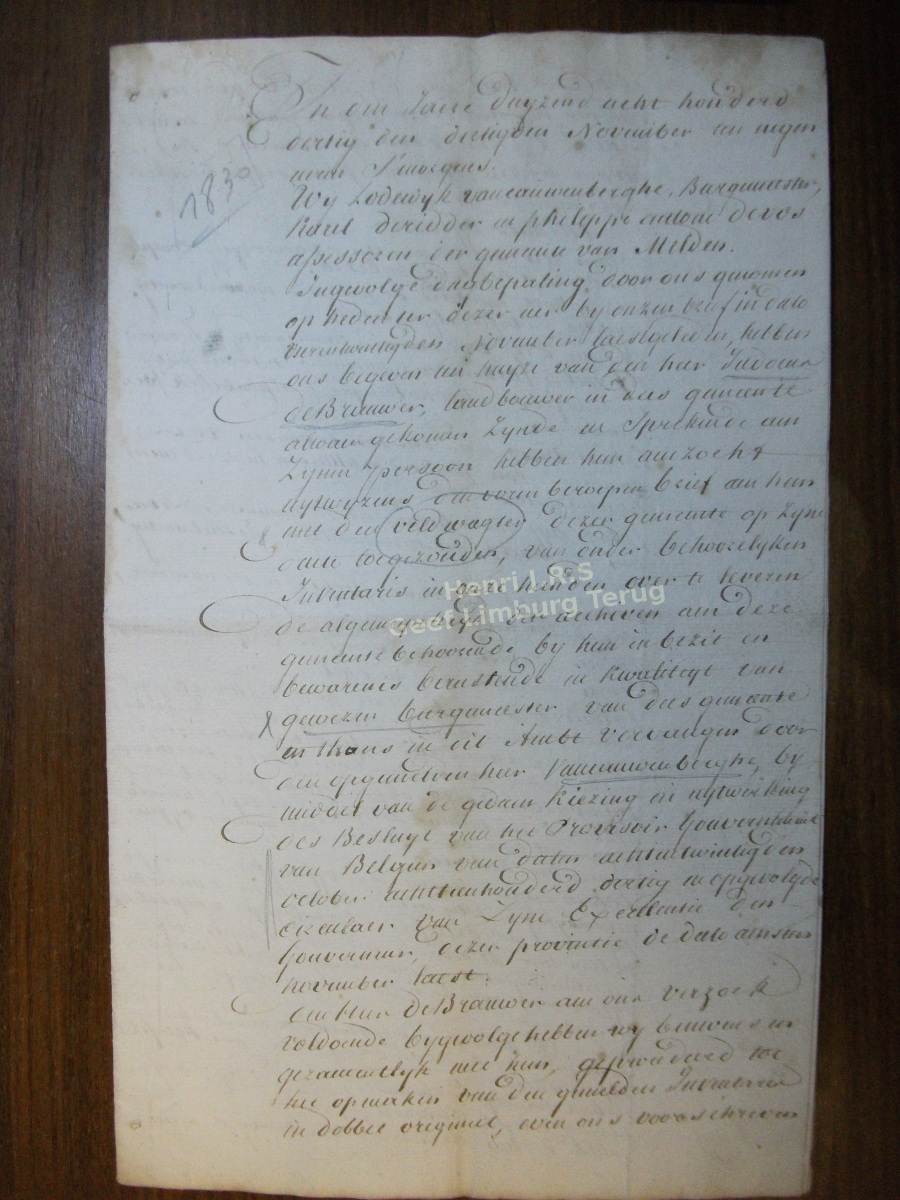 In den Jaere duyzend acht honderd
dertig den dertigsten November ten negen
uren S'morgens.
1830
Wy Lodewyk vancauwenberghe, Burgmeester,
Karel deridder en philippe antone devos
assessoren der gemeente van Melden.
Ingevolge dagbepaling door ons genomen
op heden ter dezer uer by onzen brief in dato
vierentwintigsten November laestgeleden, hebben
ons begeven ten huyze van den heer Judocus
deBrauwer, landbouwer in des gemeente
alwaer gekomen zynde en Sprekende aen
Zynen persoon hebben hem aenzocht
uytwyzens den voren beroepen brief aen hem
met den veldwagter dezer gemeente op Zyne
date toegezonden, van onder behoorelyken
Inventaris in onze handen over te leveren
de algemeynheyd der archiven aen deze
gemeente behoorende by hem in bezit en
bewarenis berustende in kwaliteyt van
gewezen burgemeester van des gemeente
en thans in dit Ambt vervangen door
den opgemelden heer Vancauwenberghe, by
middel van de gedaen kiezing in uytwerking
des Besluyt van het Provisoir Gouvernement
van Belgien van daten achtentwintigsten
october achttienhonderd dertig en opgevolgde
circulaer van Zyne Excellentie den
Gouverneur, dezer provintie de dato
november laest.
den Heer deBrauwer aen ons verzoek
voldoende bygevolge hebben wy benevens en
gezamentlyk met hem, geprocedeerd tot
het opmaken van den gemelden Inventaris
in dobbel origineel, even ons voorschreven
Henri I.R.S
Geef Limburg Terug